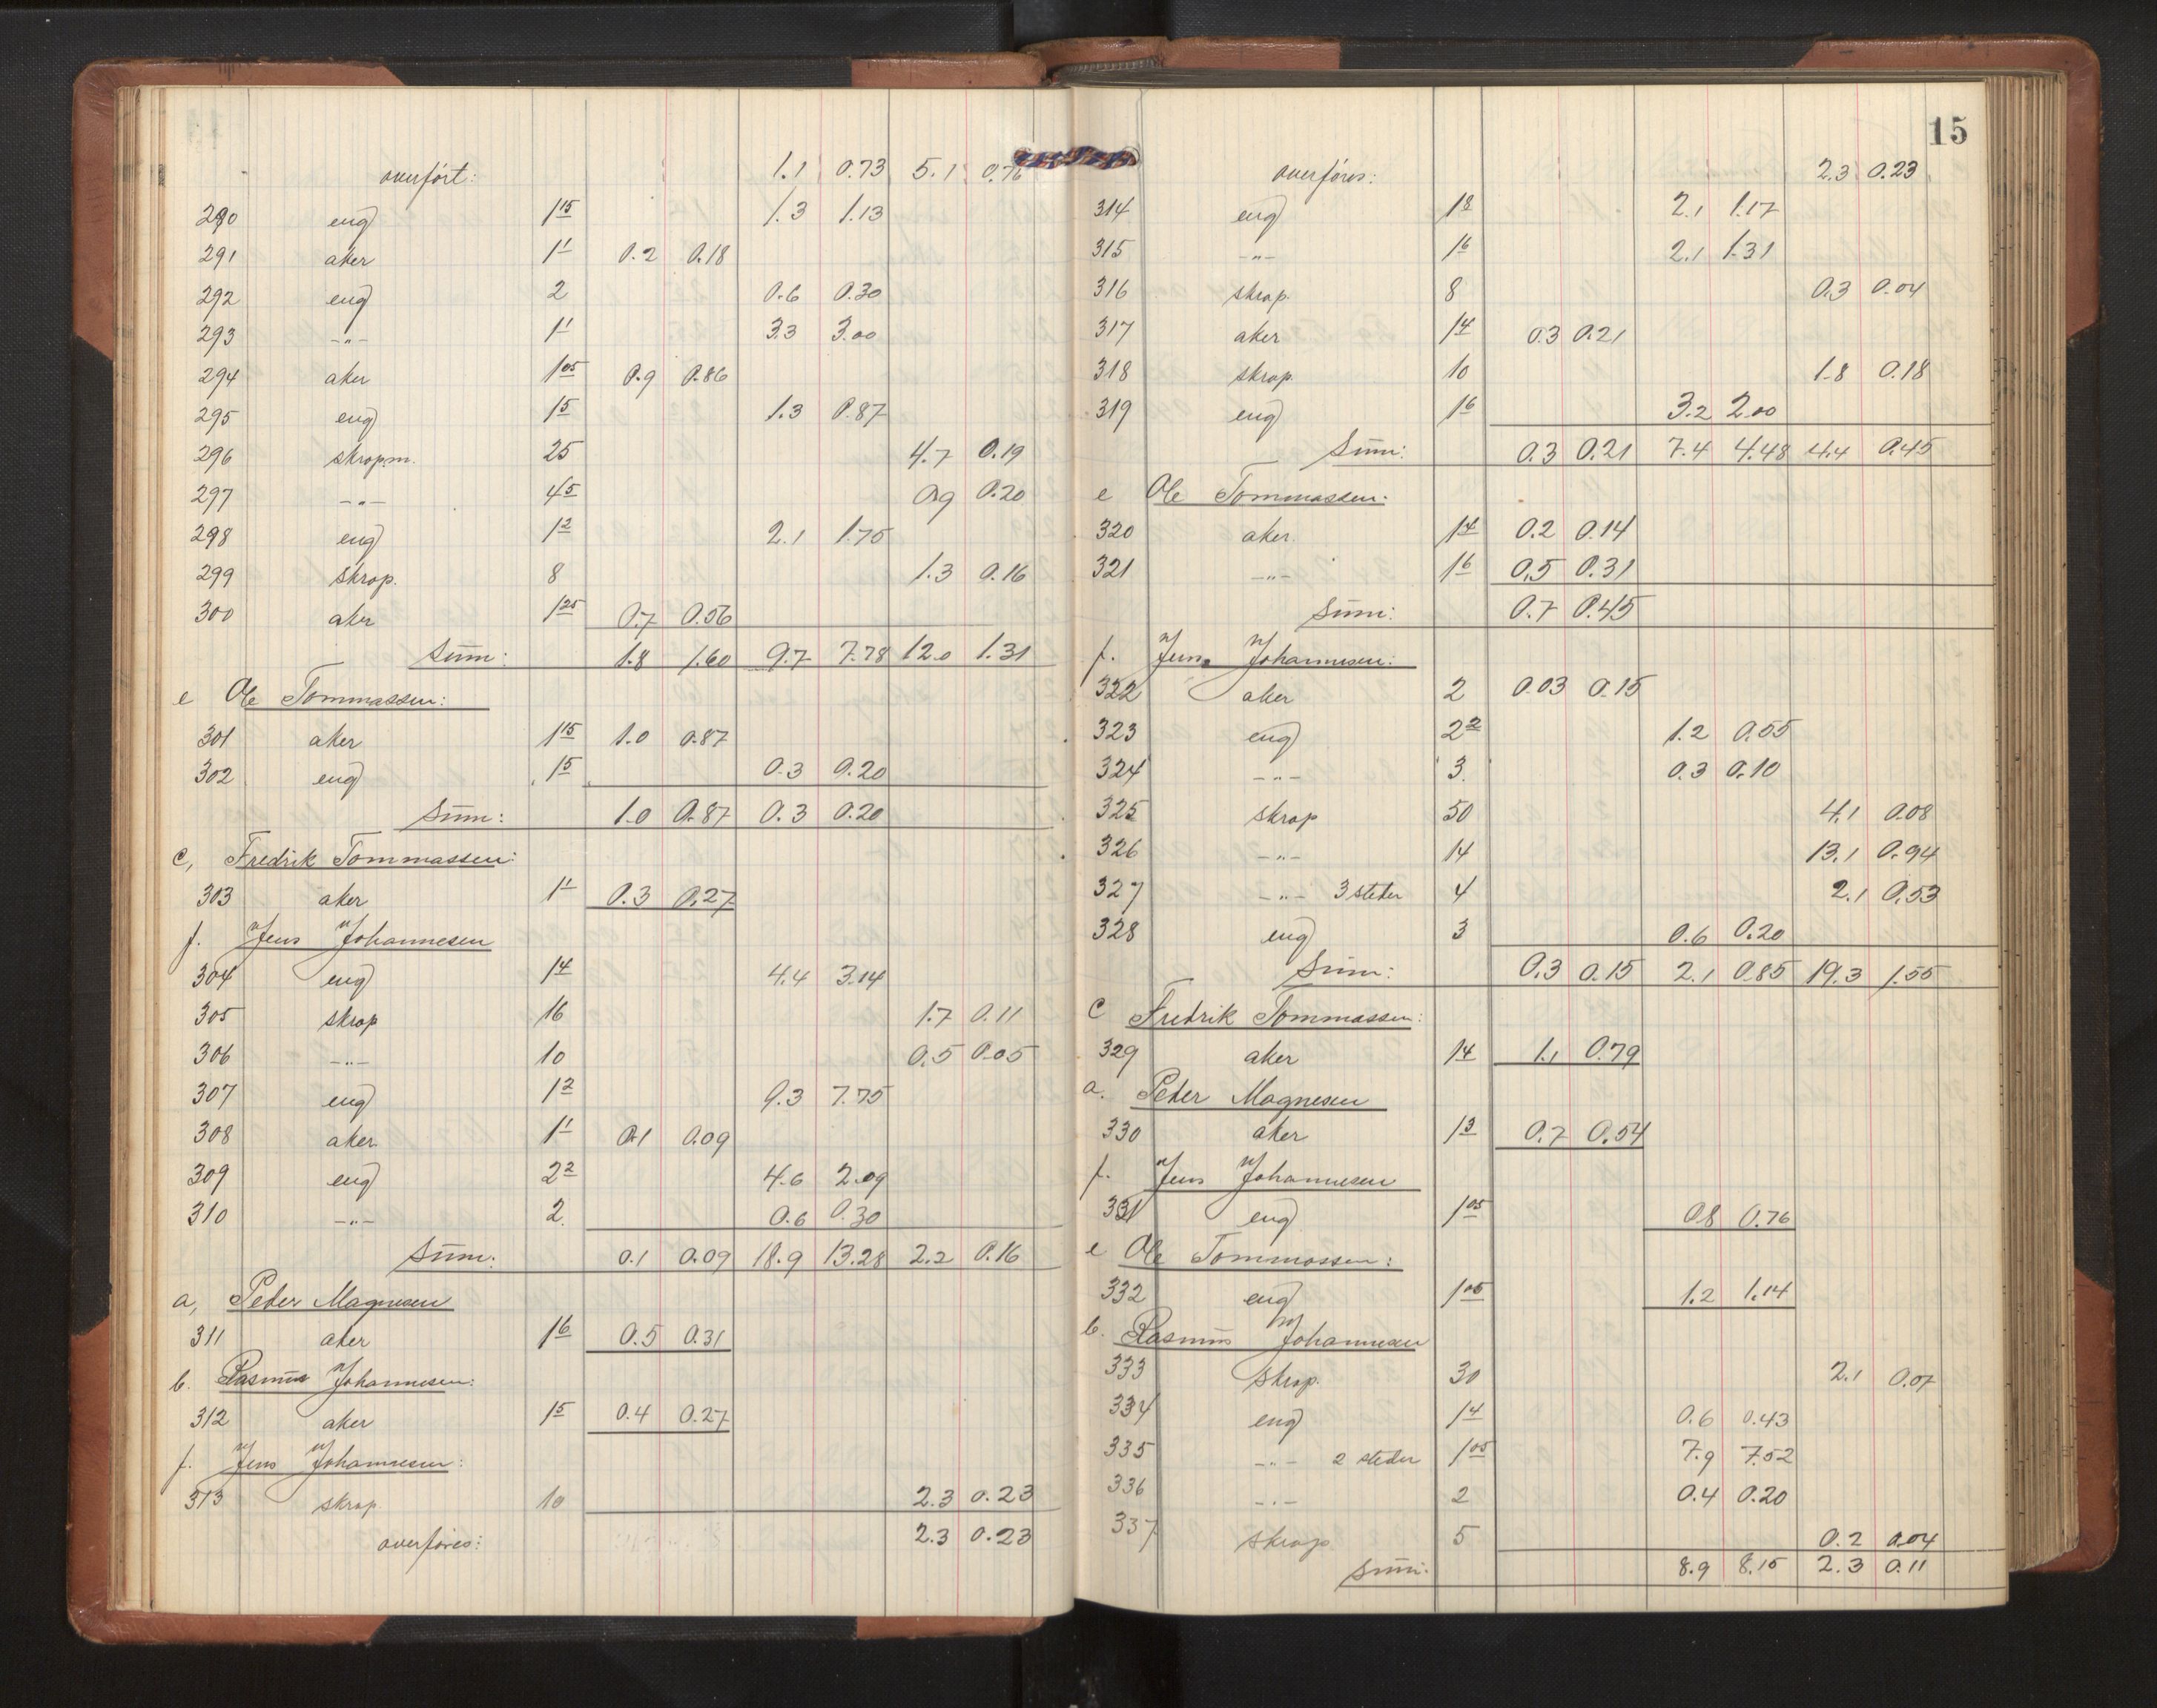 overført: 1.1 0.73 5.1 0.76
290 eng 1 15 1.3 1.13
291 aker 1 1 0.2 0.18
292 eng 2 0.6 0.30
293 -"- 1 1 3.3 3.00
294 aker 1 05 0.9 0.86
295 eng 1 5 1.3 0.87
296 skrapm. 25 4.7 0.19
297 -"- 4 5 0.9 0.20
298 eng 1 2 2.1 1.75
299 skrap. 8 1.3 0.16
300 aker 1 25 0.7 0.56
Sum: 1.8 1.60 9.7 7.78 12.0 1.31
e Ole Tommassen:
301 aker 1 15 1.0 0.87
302 eng 1 5 0.3 0.20
Sum: 1.0 0.87 0.3 0.20
c, Fredrik Tommassen:
303 aker 1 1 0.3 0.27
f. Jens Johannesen
304 eng 1 4 4.4 3.14
305 skrap 16 1.7 0.11
306 -"- 10 0.5 0.05
307 eng 1 2 9.3 7.75
308 aker 1 1 0.1 0.09
309 eng 2 2 4.6 2.09
310 -"- 2. 0.6 0.30
Sum: 0.1 0.09 18.9 13.28 2.2 0.16
a, Peder Magnesen
311 aker 1 6 0.5 0.31
b. Rasmus Johannesen:
312 aker 1 5 0.4 0.27
f. Jens Johannesen:
313 skrap. 10 2.3 0.23
overføres: 2.3 0.23
15
overføres: 2.3 0.23
314 eng 1 8 2.1 1.17
315 -"- 1 6 2.1 1.31
316 skrap. 8 0.3 0.04
317 aker 1 4 0.3 0.21
318 skrap. 10 1.8 0.18
319 eng 1 6 3.2 2.00
Sum: 0.3 0.21 7.4 4.48 4.4 0.45
e Ole Tommassen:
320 aker. 1 4 0.2 0.14
321 -"- 1 6 0.5 0.31
Sum: 0.7 0.45
f. Jens Johannesen:
322 aker 2 0.03 0.15
323 eng 2 2 1.2 0.55
324 -"- 3. 0.3 0.10
325 skrap 50 4.1 0.08
326 -"- 14 13.1 0.94
327 -"- 3 steder 4 2.1 0.53
328 eng 3 0.6 0.20
Sum: 0.3 0.15 2.1 0.85 19.3 1.55
c Fredrik Tommassen:
329 aker 1 4 1.1 0.79
a. Peder Magnesen
330 aker 1 3 0.7 0.54
f. Jens Johannesen
331 eng 1 05 0.8 0.76
e Ole Tommassen:
332 eng 1 05 1.2 1.14
b. Rasmus Johannesen
333 skrap. 30 2.1 0.07
334 eng 1 4 0.6 0.43
335 -"- 2 steder 1 05 7.9 7.52
336 -"- 2 0.4 0.20
337 skrap 5 0.2 0.04
Sum: 8.9 8.15 2.3 0.11